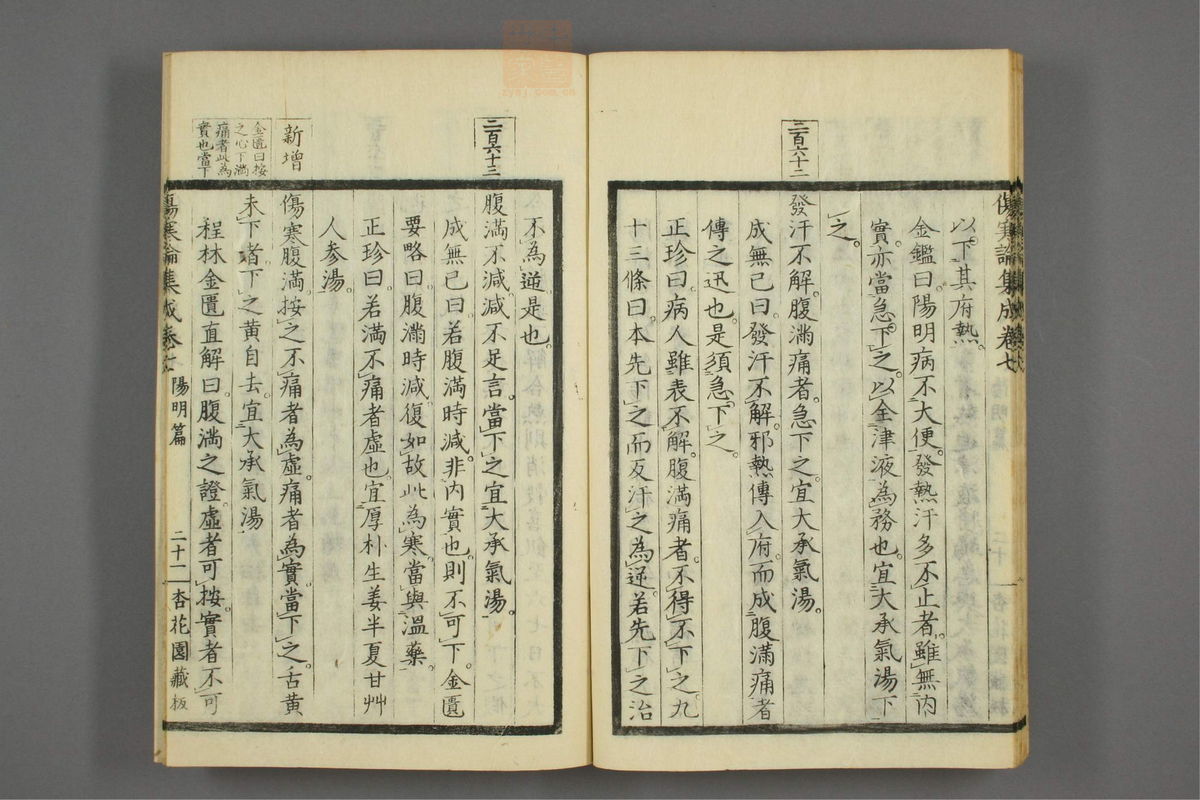 傷寒論集成卷七
以下其府熱
金鑑曰陽明病不大便發熱汗多不止者雖無內
實亦當急下之以全津液為務也宜大承氣湯下
之
二百六十二
發汗不解腹滿痛者急下之宜大承氣湯
成無已曰發汗不解邪熱傳入府而成腹滿痛者
傳之迅也是須急下之
正珍曰病人雖表不解腹滿痛者不得不下之九
十三條曰本先下之而反汗之為逆若先下之治
不為逆是也
二百六十三
腹滿不減減不足言當下之宜大承氣湯
成無已曰若腹滿時減非內實也則不可下金匱
要略曰腹滿時減復如故此為寒當與溫藥
正珍曰若滿不痛者虛也宜厚朴生姜半夏甘艸
人参湯
新增
傷寒腹滿按之不痛者為虛痛者為實當下之舌黃
未下者下之黃自去宜大承氣湯
金匱曰按
之心下滿
痛者此為
實也當下
程林金匱直解曰腹滿之證虛者可按實者不可
傷寒論集成卷七 陽明篇 二十二 杏花園藏板